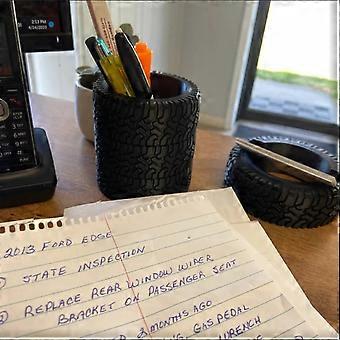 2:13 PM
4/24/2020
2013 FORD EDGE
STATE INSPECTION
REPLACE REAR WINDOW WIPER
BRACKET ON PASSENGER SEAT
2 MONTHS AGO
GAS PEDAL
WRENCH